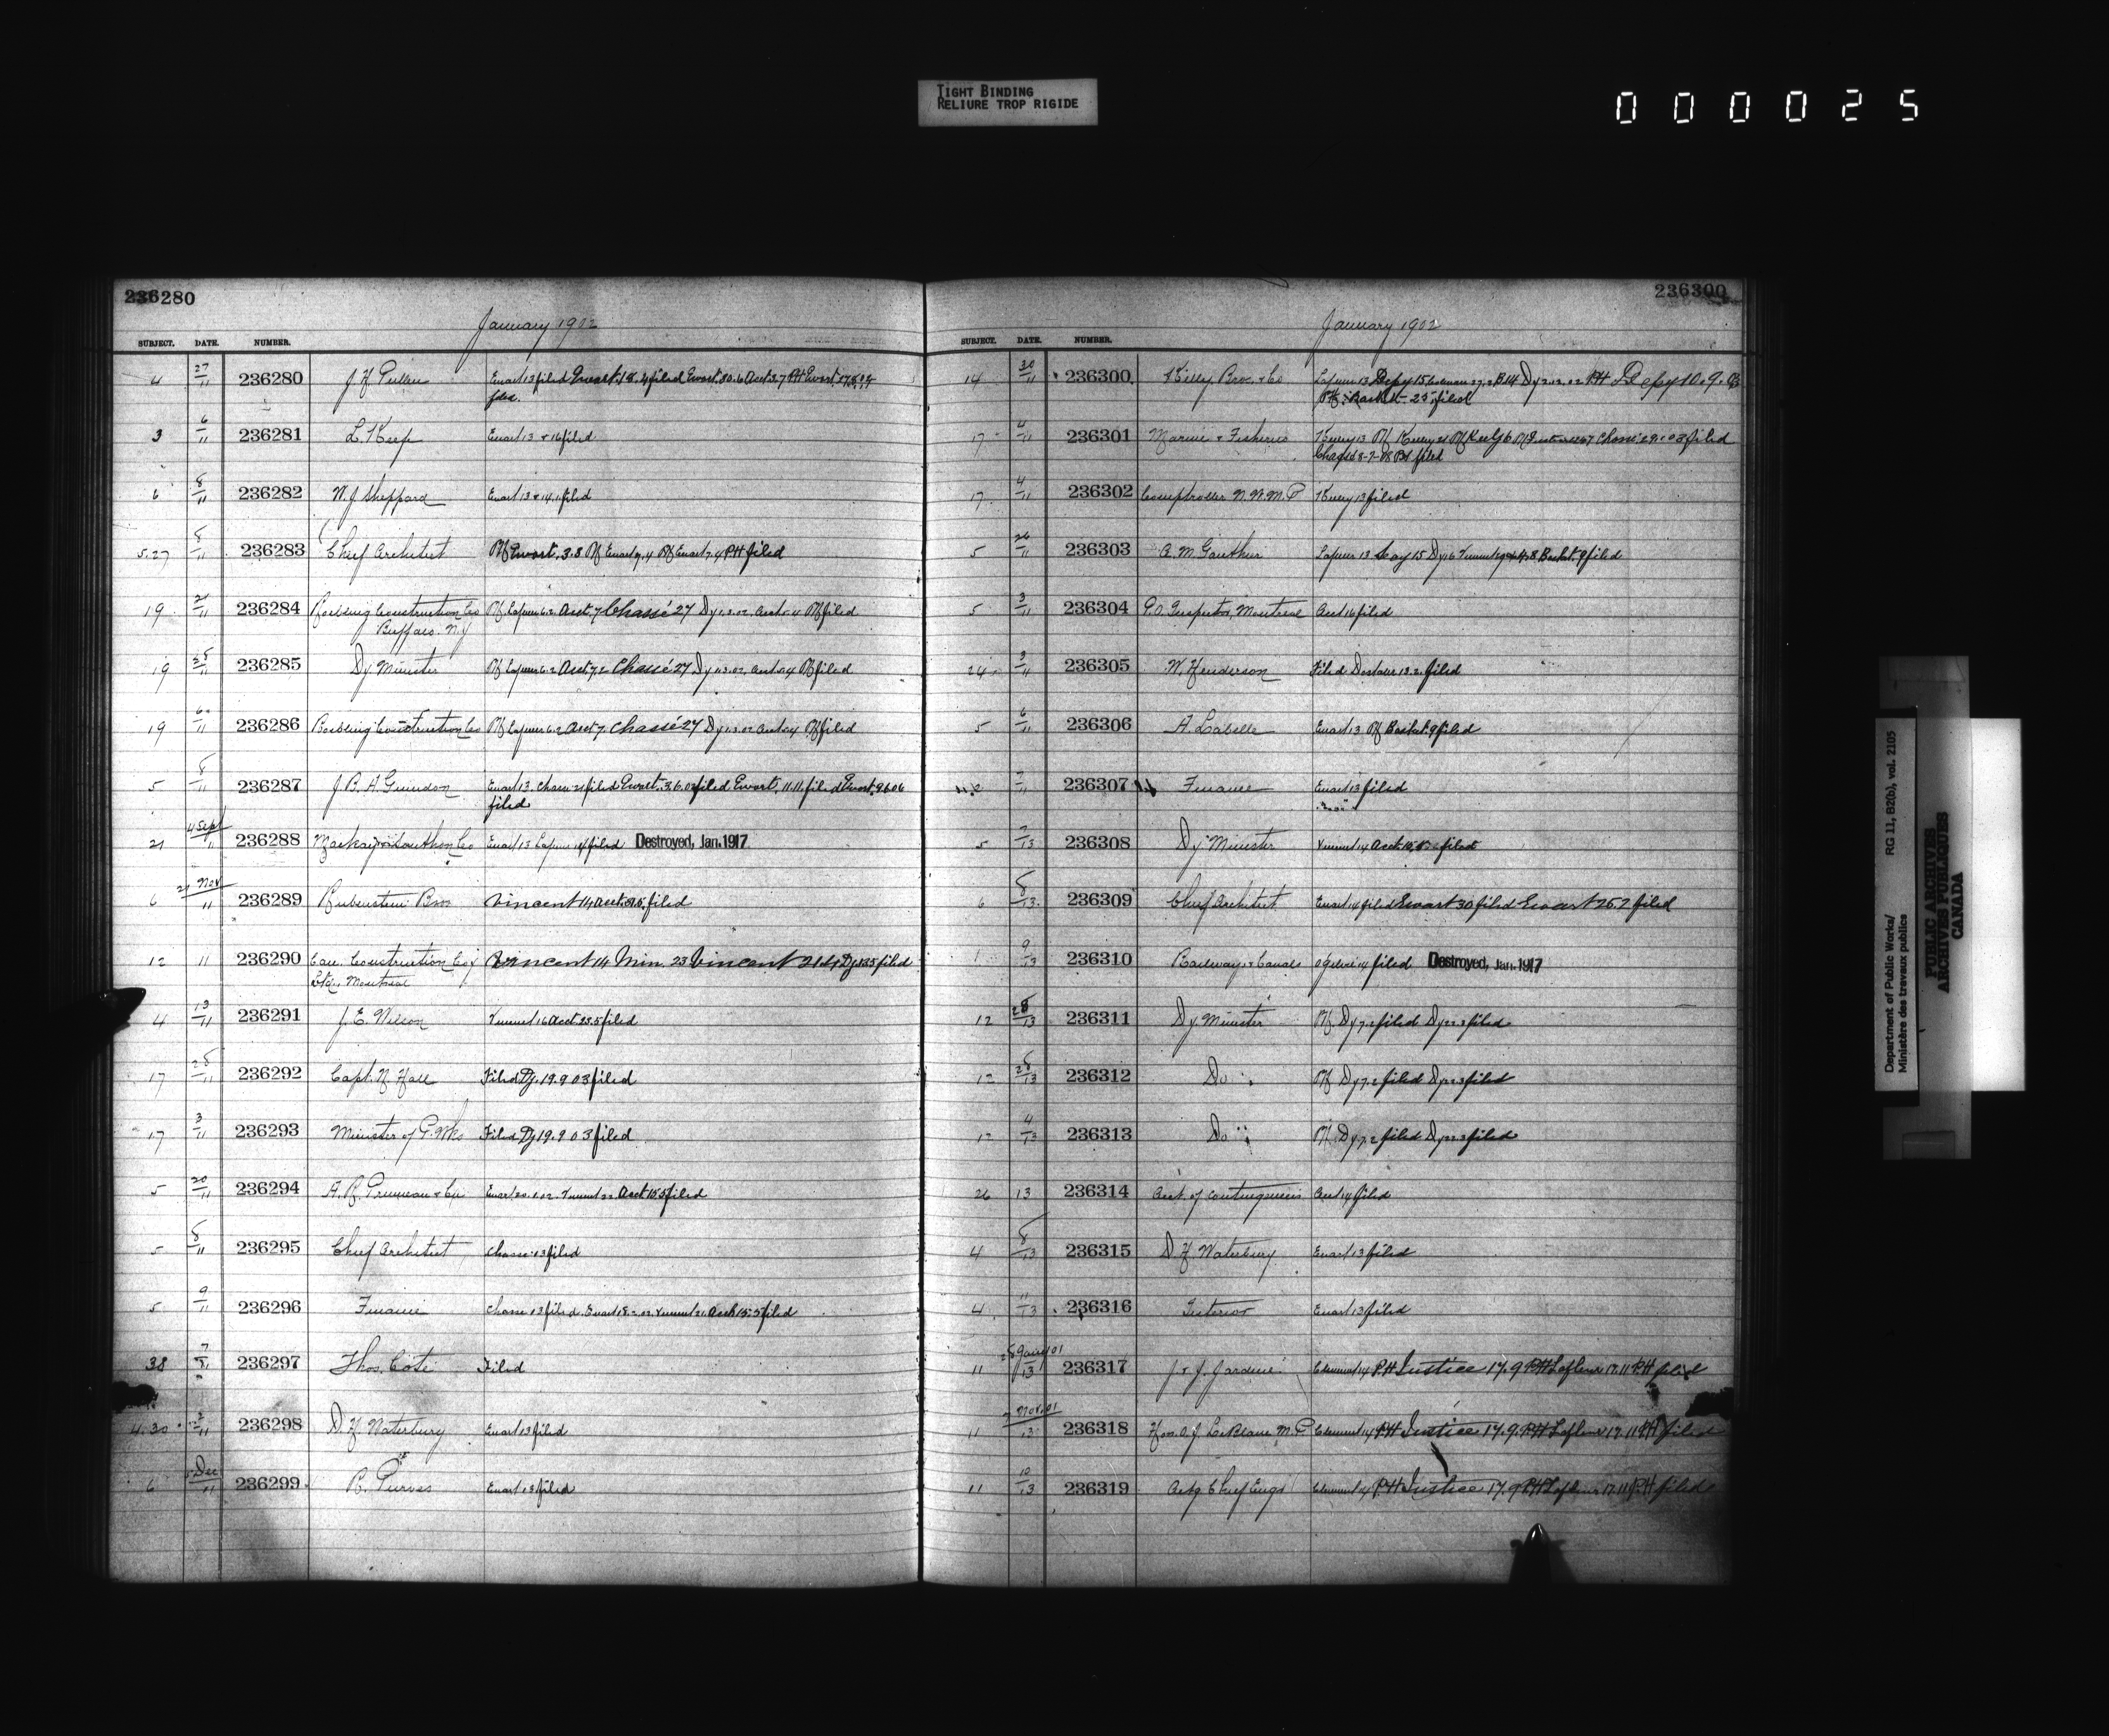 TIGHT BINDING
RELIURE TROP RIGIDE
000025
236280
January 1902
SUBJECT. DATE. NUMBER.
4 27/11 236280 J H Pullen Ewart 13 filed Ewart 18.4 filed Ewart 30.6 Acct 3.7 PH Ewart
filed.
3 6/11 236281 L. Keep Ewart 13 + 16 filed
6 8/11 236282 W. J Sheppard Ewart 13 + 14.1 filed
5.27 8/11 236283 Chief Architect Rf Ewart. 3.3 Rf Ewart 7.4 Rf Ewart 7.4 PH filed
19 21/11 236284 Construction Co Rf Lafleur 6.2 Acct. 7 Chassé 27 Dy 1.3.02 Acct 5.4 Rf filed
Buffalo. N.Y
19 28/11 236285 Dy. Minister Rf Lafleur 6.2 Acct. 7.2 Chassé 27 Dy 1.3.02 Acct 5.4 Rf filed
19 6/11 236286 Construction Co Rf Lafleur 6.2 Acct 7. Chassé 27 Dy 1.3.02 Acct 5.4 Rf filed
5 8/11 236287 J. B. A. Guindon Ewart 13. Chasse 21 filed Ewart. 3.6.02 filed Ewart. 11.11. filed Ewart. 9.6.06
filed
21 4 Sept/11 236288 Co Ewart 13 Lafleur filed Destroyed, Jan. 1917
6 21 Nov/11 236289 Rubenstein Bros Vincent 14 Acct. filed
12 11 236290 Can. Construction Coy Vincent 14 Min. 23 Vincent 21.4 Dy 13.5 filed
Ltd., Montreal
4 13/11 236291 J. E. Wilson Vincent 16 Acct 23.5 filed
17 28/11 236292 Capt. N Hall Filed Dy. 19.9 03 filed
17 3/11 236293 Minister of P. Wks Filed Dy 19.9 03 filed
5 20/11 236294 A. R. Pruneau + Cie Ewart 20.1.02. Vincent 22 Acct 15 5 filed
5 8/11 236295 Chief Architect Chasse 13 filed
5 9/11 236296 Finance Chasse 13 filed. Ewart 18.2.02. Vincent 21. Acct 15.5 filed
38 7/11 236297 Thos. Coté Filed
4.30 236298 D. H Waterbury Ewart 13 filed
6 5 Dec/11 236299 R. Purves Ewart 13 filed
236300
January 1902
SUBJECT. DATE. NUMBER.
14 30/11 236300 Kelly Bros. + Co Lafleur 13 Depy 15 Coleman 27.2 B 14 Dy 2.12.02 PH Depy 10.9.
Basket 25 filed
17 4/11 236301 Marine + Fisheries Keeley 13 Rf Keeley 21 Rf Chassé 29.1 03 filed
filed
17 4/11 236302 Comptroller N. W. M. P Keeley 13 filed
5 26/11 236303 A. M. Gauthier Lafleur 13 15 Dy 16 Vincent Basket. 9 filed
5 3/11 236304 P. O. Inspector, Montreal Acct 16 filed
24 3/11 236305 W. Henderson Filed 13.2 filed
5 6/11 236306 A. Labelle Ewart 13 Rf Basket. 9 filed
7/11 236307 Finance Ewart 13 filed
5 7/13 236308 Dy Minister Vincent 14 Acct filed
6 8/13 236309 Chief Architect Ewart 14 filed Ewart 30 filed Ewart 26.7 filed
1 9/13 236310 Railways + Canals Ogilvie 14 filed Destroyed, Jan. 1917
12 28/13 236311 Dy. Minister Rf Dy 7.2 filed Dy 22.3 filed
12 28/13 236312 Do Rf Dy 7.2 filed Dy 22.3 filed
12 4/13 236313 Do Rf. Dy 7.2 filed Dy 22.3 filed
26 13 236314 Acct. of Contingencies Acct 14 filed
4 8/13 236315 D. H Waterbury Ewart 13 filed
4 11/13 236316 Interior Ewart 13 filed
11 28 Jany 01/13 236317 J + J. Jardine Clement 14 PH Justice 17.9 PH Lafleur 17.11 PH filed
11 Nov. 01/13 236318 Hon. O. J LeBlanc M. P Clement 14 PH Justice 17.9. PH Lafleur 17.11 PH filed
11 10/13 236319 Actg Chief Engr Clement 14 PH Justice 17.9 PH Lafleur 17.11 PH filed
Department of Public Works/
Ministère des travaux publics
RG 11, B2(b), vol. 2105
PUBLIC ARCHIVES
ARCHIVES PUBLIQUES
CANADA